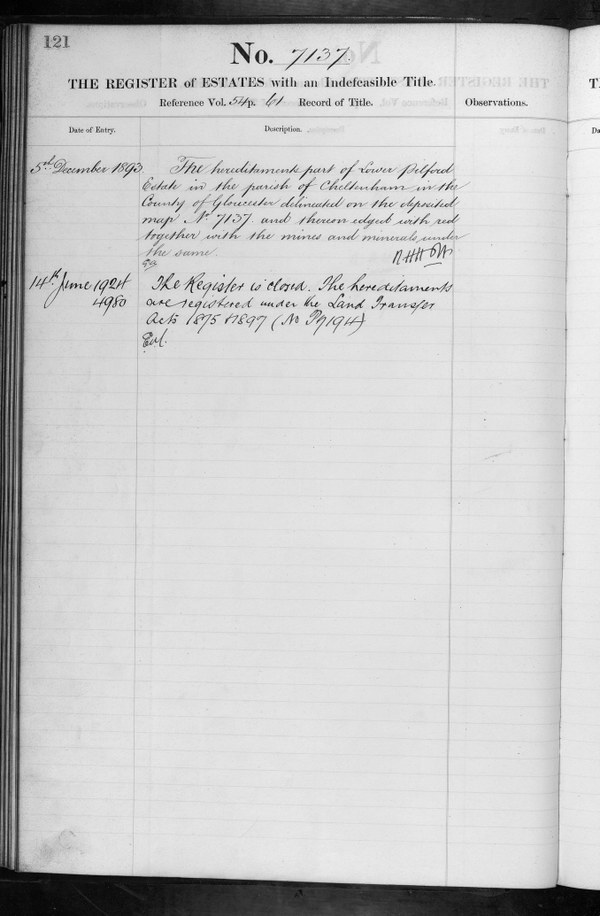 121
No. 7137.
THE REGISTER of ESTATES with an Indefeasible Title.
Reference Vol. 54 p. 61 Record of Title.
Observations.
Date of Entry.
Description.
5th December 1893
The hereditaments part of Lower Pilford
Estate in the parish of Cheltenham in the
County of Gloucester delineated on the deposited
map No 7137 and thereon edged with red
together with the mines and minerals under
the same.
14th June 1924
4980
The Register is closed. The hereditaments
are registered under the Land Transfer
Acts 1875 & 1897 (No